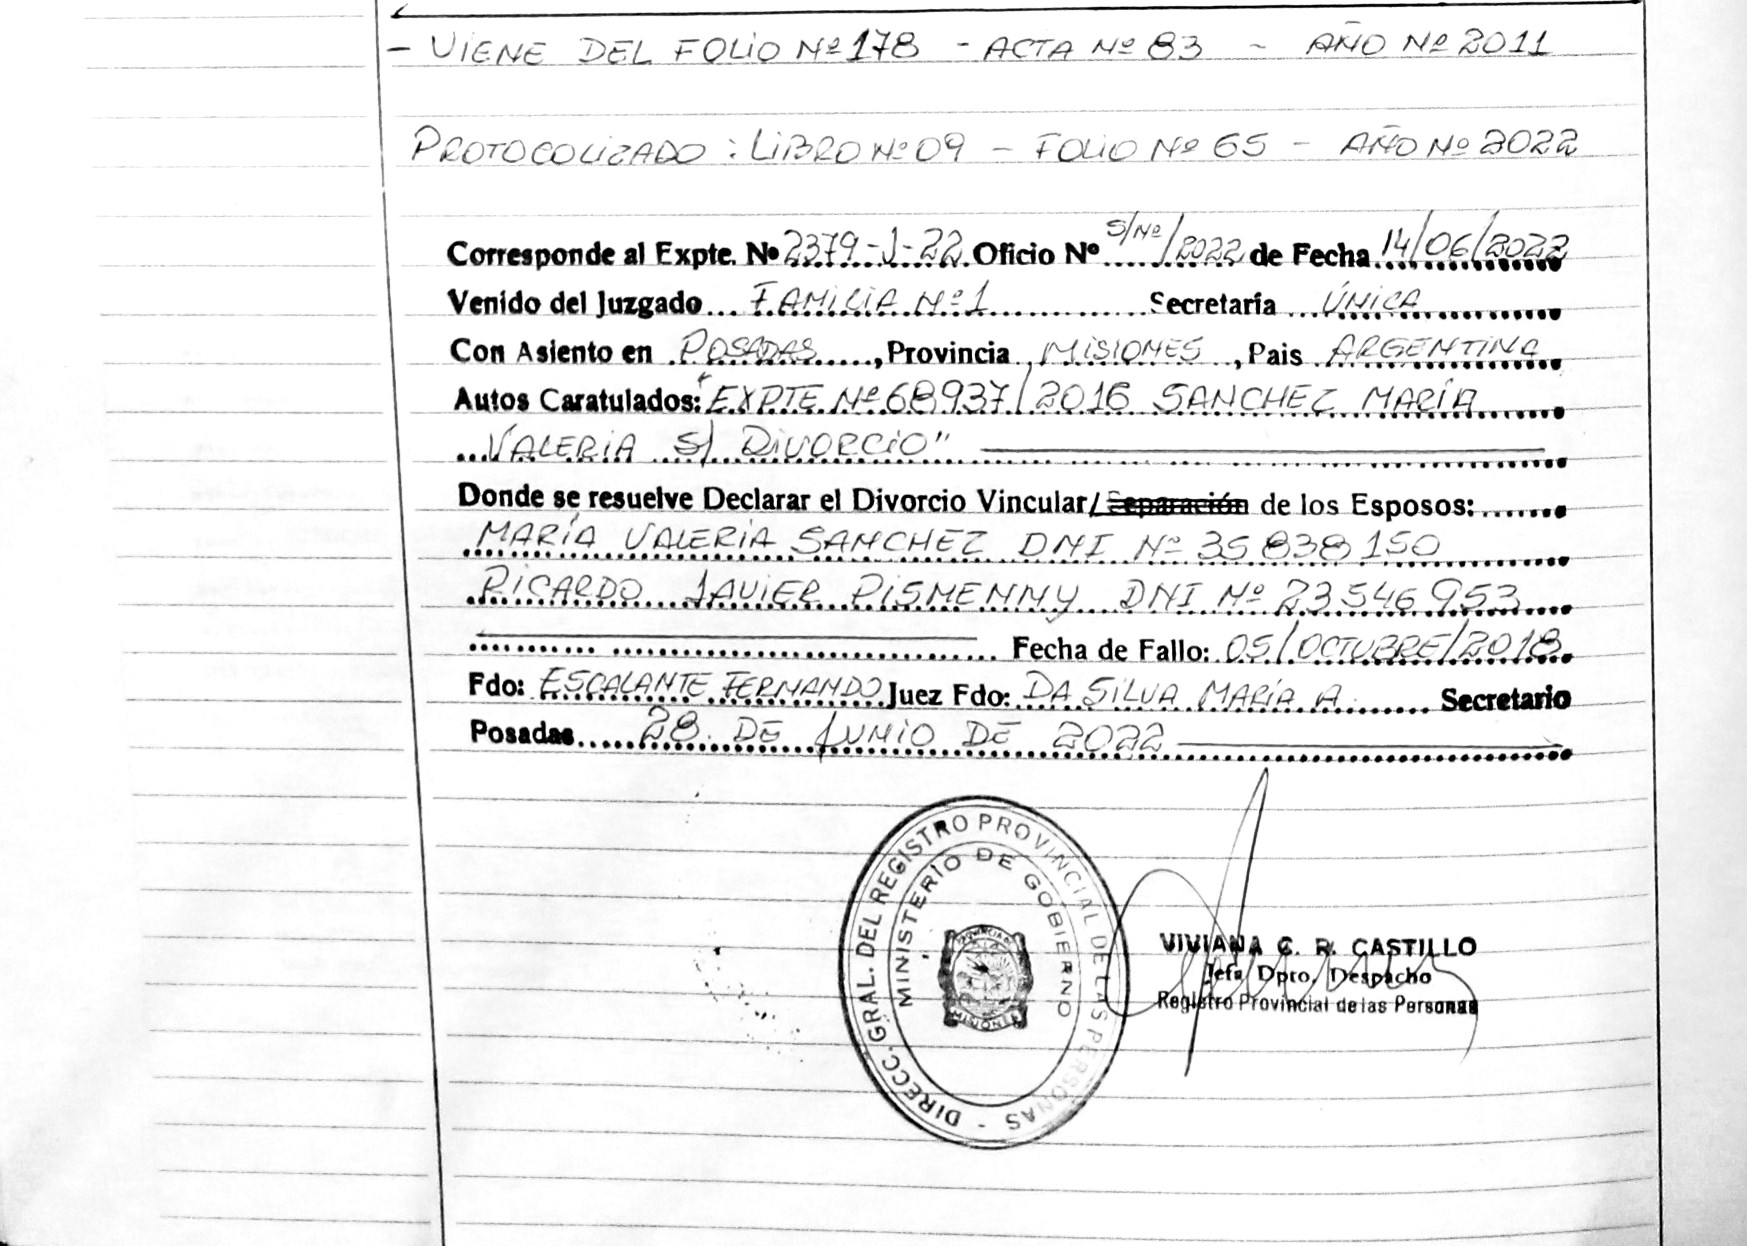 - VIENE DEL FOLIO Nº 178 - ACTA Nº 83 - AÑO Nº 2011
PROTOCOLIZADO : LIBRO Nº 09 - FOLIO Nº 65 - AÑO Nº 2022
Corresponde al Expte. Nº 2379-J-22 Oficio Nº S/Nº/2022 de Fecha 14/06/2022
Venido del Juzgado FAMILIA Nº 1 Secretaría ÚNICA
Con Asiento en POSADAS, Provincia MISIONES, Pais ARGENTINA
Autos Caratulados: "EXPTE Nº 68937/2016 SANCHEZ MARÍA
VALERIA S/ DIVORCIO"
Donde se resuelve Declarar el Divorcio Vincular/Separación de los Esposos:
MARÍA VALERIA SANCHEZ DNI Nº 35838150
RICARDO JAVIER PISMENNY DNI Nº 23546953
Fecha de Fallo: 05/OCTUBRE/2018
Fdo: ESCALANTE FERNANDO Juez Fdo: DA SILVA MARÍA A. Secretario
Posadas 28 DE JUNIO DE 2022
DIRECC. GRAL. DEL REGISTRO PROVINCIAL DE LAS PERSONAS -
MINISTERIO DE GOBIERNO
PROVINCIA DE
MISIONES
VIVIANA C. R. CASTILLO
Jefa Dpto. Despacho
Registro Provincial de las Personas